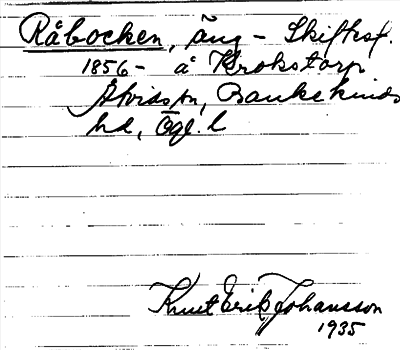 Råbocken, äng - Skiftesf.
1856- å Krokstorp
Åtvids sn, Bankekinds
hd, Ögl. l
Knut Erik Johansson
1935